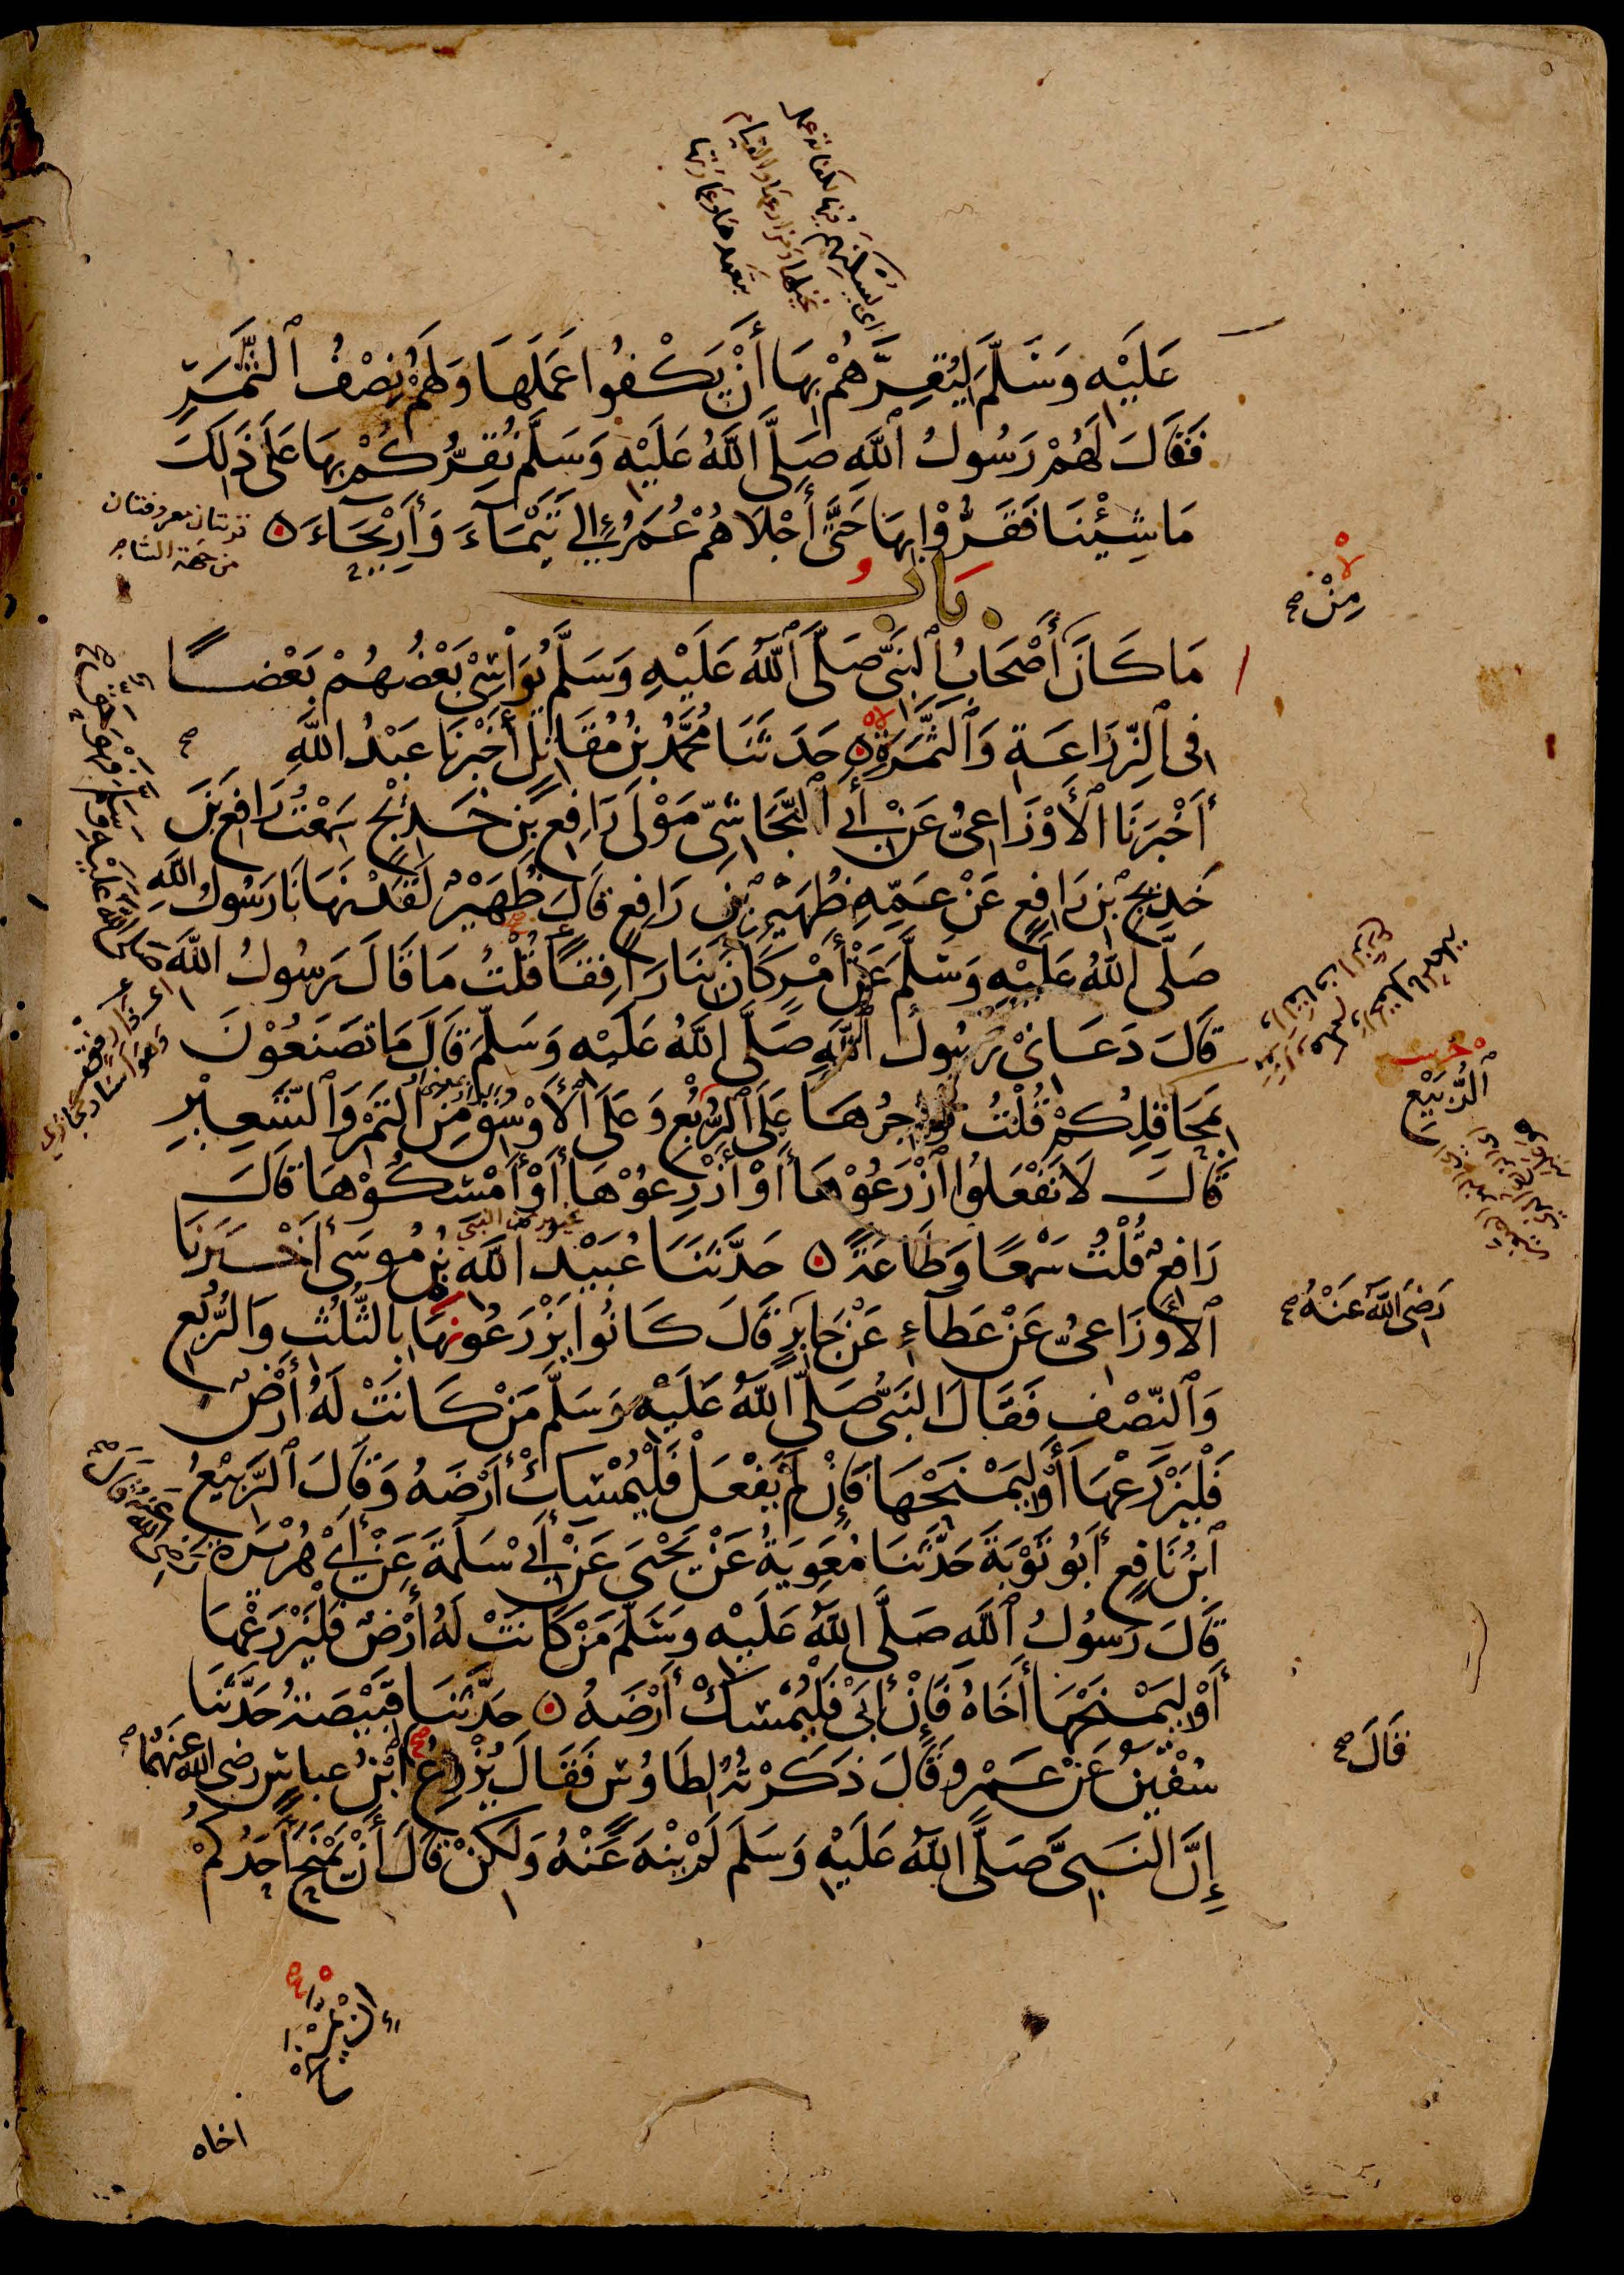 اى ليسكنهم فيها لكفاية عمل
نخيلها ومزارعها والقيام
بتعهدها وعمارتها
عَلَيْهِ وَسَلَّمَ لِيُقِرَّهُمْ بِهَا أَنْ يَكْفُوا عَمَلَهَا وَلَهُمْ نِصْفُ الثَّمَرِ
فَقَالَ لَهُمْ رَسُولُ اللَّهِ صَلَّى اللَّهُ عَلَيْهِ وَسَلَّمَ نُقِرُّكُمْ بِهَا عَلَى ذَلِكَ
مَا شِئْنَا فَقَرُّوْا بِهَا حَتَّى أَجْلَاهُمْ عُمَرُ إِلَى تَيْمَاءَ وَأَرِيحَاءَ ه
قريتان معروفتان
من جهة الشام
بَابُ
مِنْ صح
مَا كَانَ أَصْحَابُ النَّبِيِّ صَلَّى اللَّهُ عَلَيْهِ وَسَلَّمَ يُوَاسِيْ بَعْضُهُمْ بَعْضًا
فِي الزِّرَاعَةِ وَالثَّمَرَةِ ه حَدَثَنَا مُحَمَّدُ بْنُ مُقَاتِلٍ أَخْبَرَنَا عَبْدُ اللَّهِ
أَخْبَرَنَا الْأَوْزَاعِيُّ عَنْ أَبِي النَّجَاشِيِّ مَوْلَى رَافِعِ بْنِ خَدِيْجٍ سَمِعْتُ رَافِعَ بْنَ
خَدِيجِ بْنِ رَافِعٍ عَنْ عَمِّهِ ظُهَيْرِ بْنِ رَافِعٍ قَالَ ظُهَيْرٌ لَقَدْ نَهَانَا رَسُولُ اللَّهِ
صَلَّى اللَّهُ عَلَيْهِ وَسَلَّمَ عَنْ أَمْرٍ كَانَ بِنَا رَافِقًا قُلْتُ مَا قَالَ رَسُولُ اللَّهِ
صَلَّى اللَّهُ عَلَيْهِ وَسَلَّمَ فَهُوَ حَقٌّ صح
اى ذا رفق
وهو اسناد مجازي
قَالَ دَعَانِيْ رَسُولُ اللَّهِ صَلَّى اللَّهُ عَلَيْهِ وَسَلَّمَ قَالَ مَا تَصْنَعُوْنَ
بِمَحَاقِلِكُمْ قُلْتُ نُؤَاجِرُهَا عَلَى الرُّبُعِ وَعَلَى الْأَوْسُقِ مِنَ التَّمْرِ وَالشَّعِيْرِ
الرَّبِيْعِ
قَالَ لَا تَفْعَلُوا ازْرَعُوْهَا أَوْ أَزْرِعُوْهَا أَوْ أَمْسِكُوْهَا قَالَ
رَافِعٌ قُلْتُ سَمْعًا وَطَاعَةً ه حَدَّثَنَا عُبَيْدُ اللَّهِ بْنُ مُوسَى أَخْبَرَنَا
الْأَوْزَاعِيُّ عَنْ عَطَاءٍ عَنْ جَابِرٍ قَالَ كَانُوا يَزْرَعُونَهَا بِالثُّلُثِ وَالرُّبُعِ
رَضِيَ اللَّهُ عَنْهُ صح
وَالنِّصْفِ فَقَالَ النَّبِيُّ صَلَّى اللَّهُ عَلَيْهِ وَسَلَّمَ مَنْ كَانَتْ لَهُ أَرْضٌ
فَلْيَزْرَعْهَا أَوْ لِيَمْنَحْهَا فَإِنْ لَمْ يَفْعَلْ فَلْيُمْسِكْ أَرْضَهُ وَقَالَ الرَّبِيْعُ
ابْنُ نَافِعٍ أَبُو تَوْبَةَ حَدَّثَنَا مُعَوِيَةُ عَنْ يَحْيَى عَنْ أَبِيْ سَلَمَةَ عَنْ أَبِيْ هُرَيْرَةَ
رَضِيَ اللَّهُ عَنْهُ قَالَ صح
قَالَ رَسُولُ اللَّهِ صَلَّى اللَّهُ عَلَيْهِ وَسَلَّمَ مَنْ كَانَتْ لَهُ أَرْضٌ فَلْيَزْرَعْهَا
أَوْ لِيَمْنَحْهَا أَخَاهُ فَإِنْ أَبَى فَلْيُمْسِكْ أَرْضَهُ ه حَدَّثَنَا قَبِيْصَةُ حَدَّثَنَا
سُفْيٰنُ عَنْ عَمْرٍو قَالَ ذَكَرْتُهُ لِطَاوُسٍ فَقَالَ يُزْرِعُ ابْنُ عباس رضى الله عنهما
قَالَ صح
إِنَّ النَّبِيَّ صَلَّى اللَّهُ عَلَيْهِ وَسَلَّمَ لَمْ يَنْهَ عَنْهُ وَلَكِنْ قَالَ أَنْ يَمْنَحَ أَحَدُكُمْ
إِنْ يَمْنَحْ
اخاه